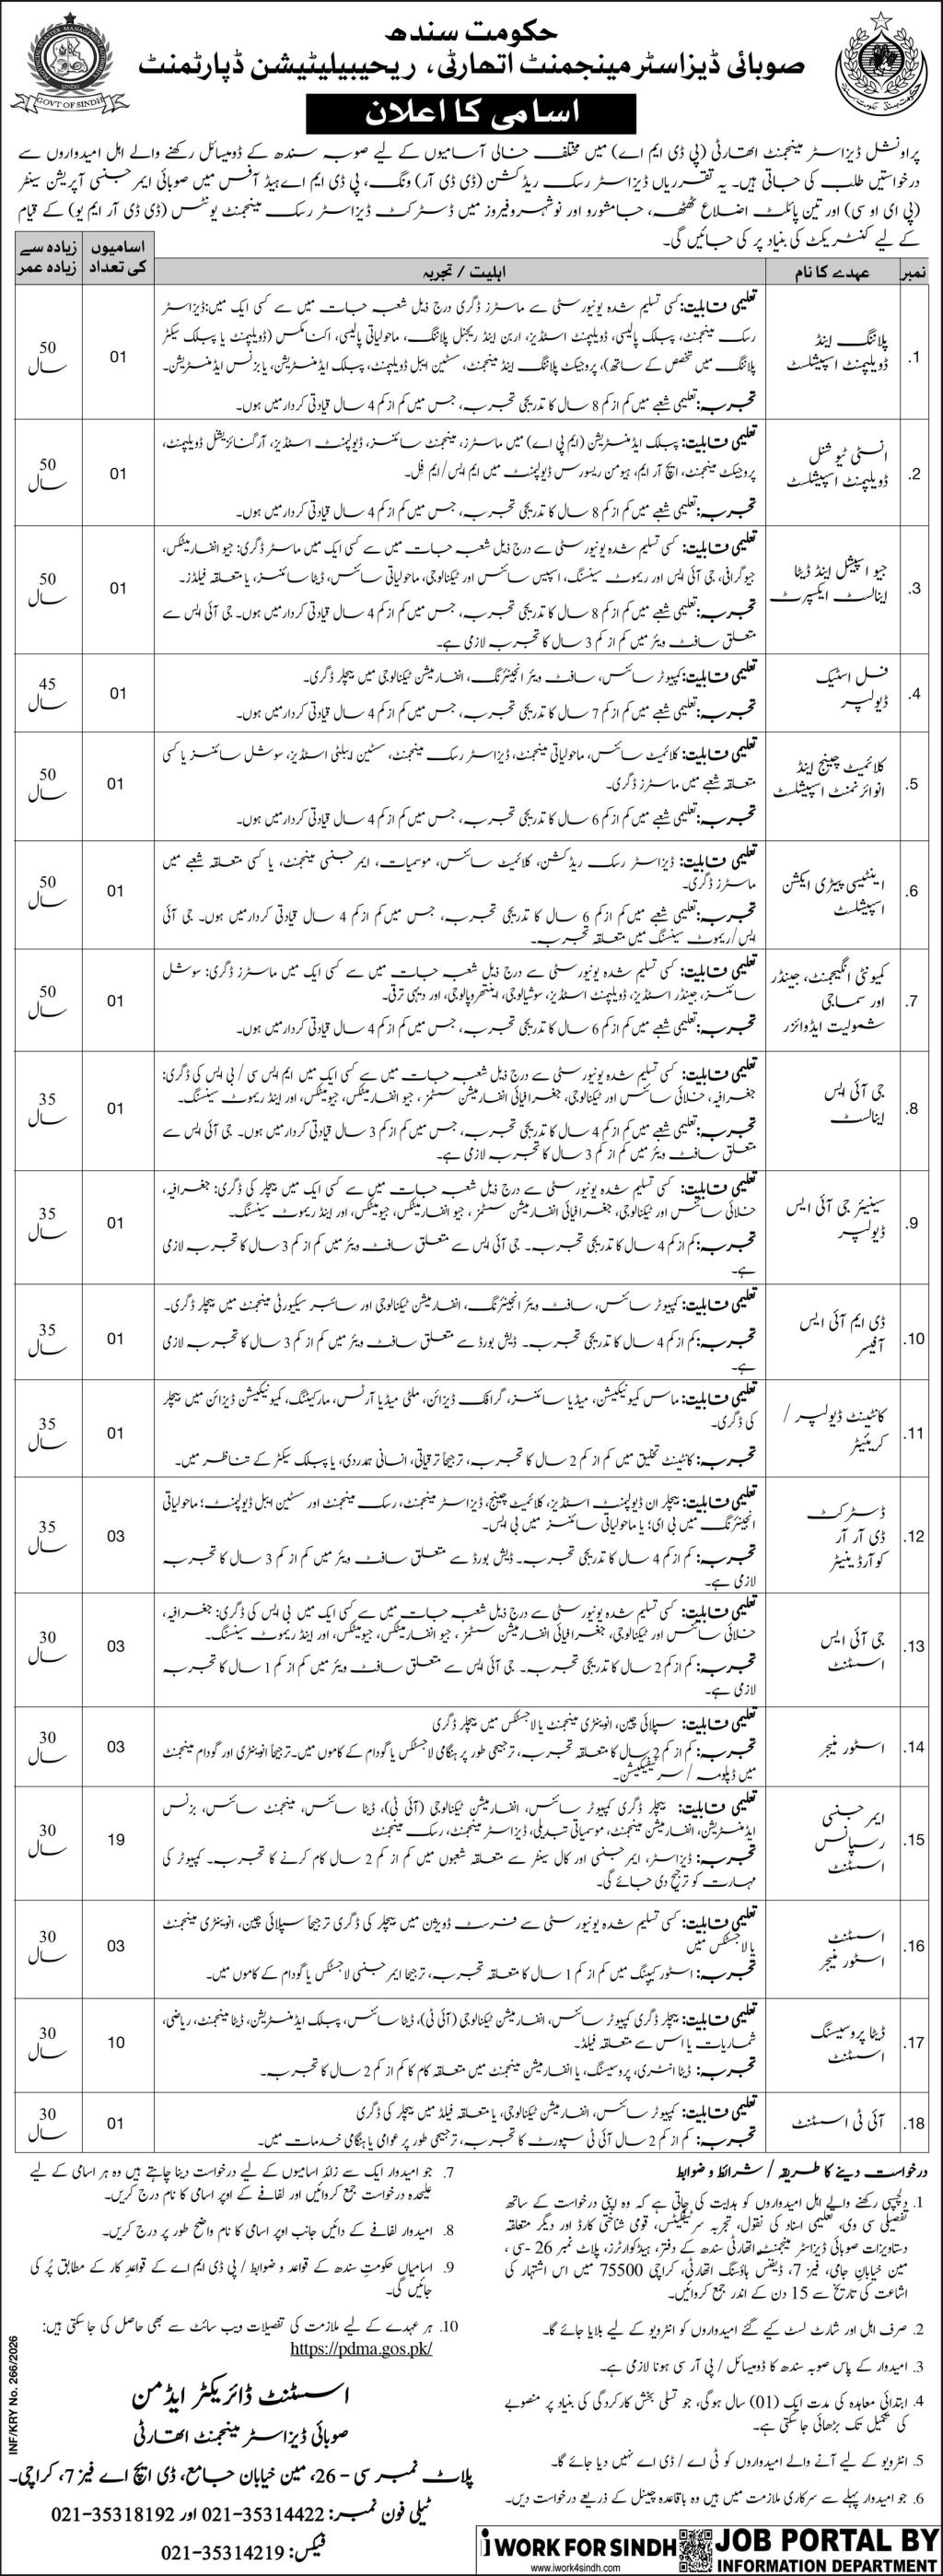 حکومت سندھ
صوبائی ڈیزاسٹر مینجمنٹ اتھارٹی، ریحیبیلیٹیشن ڈپارٹمنٹ
GOVT OF SINDH
اسامی کا اعلان
پراونشل ڈیزاسٹر مینجمنٹ اتھارٹی (پی ڈی ایم اے) میں مختلف خالی آسامیوں کے لیے صوبہ سندھ کے ڈومیسائل رکھنے والے اہل امیدواروں سے
درخواستیں طلب کی جاتی ہیں۔ یہ تقرریاں ڈیزاسٹر رسک ریڈکشن (ڈی ڈی آر) ونگ، پی ڈی ایم اے ہیڈ آفس میں صوبائی ایمرجنسی آپریشن سینٹر
(پی ای او سی) اور تین پائلٹ اضلاع ٹھٹھہ، جامشورو اور نوشہروفیروز میں ڈسٹرکٹ ڈیزاسٹر رسک مینجمنٹ یونٹس (ڈی ڈی آر ایم یو) کے قیام
کے لیے کنٹریکٹ کی بنیاد پر کی جائیں گی۔
نمبر عہدے کا نام اہلیت / تجربہ اسامیوں کی تعداد زیادہ سے زیادہ عمر
1. پلاننگ اینڈ ڈویلپمنٹ اسپیشلسٹ
تعلیمی قابلیت: کسی تسلیم شدہ یونیورسٹی سے ماسٹرز ڈگری درج ذیل شعبہ جات میں سے کسی ایک میں: ڈیزاسٹر
رسک مینجمنٹ، پبلک پالیسی، ڈویلپمنٹ اسٹڈیز، اربن اینڈ ریجنل پلاننگ، ماحولیاتی پالیسی، اکنامکس (ڈویلپمنٹ یا پبلک سیکٹر
پلاننگ میں تخصص کے ساتھ)، پروجیکٹ پلاننگ اینڈ مینجمنٹ، سسٹین ایبل ڈویلپمنٹ، پبلک ایڈمنسٹریشن، یا بزنس ایڈمنسٹریشن۔
تجربہ: تعلیمی شعبے میں کم از کم 8 سال کا تدریجی تجربہ، جس میں کم از کم 4 سال قیادتی کردار میں ہوں۔
01
50 سال
2. انسٹی ٹیوشنل ڈویلپمنٹ اسپیشلسٹ
تعلیمی قابلیت: پبلک ایڈمنسٹریشن (ایم پی اے) میں ماسٹرز، مینجمنٹ سائنسز، ڈیولپمنٹ اسٹڈیز، آرگنائزیشنل ڈویلپمنٹ،
پروجیکٹ مینجمنٹ، ایچ آر ایم، ہیومن ریسورس ڈیولپمنٹ میں ایم ایس/ایم فل۔
تجربہ: تعلیمی شعبے میں کم از کم 8 سال کا تدریجی تجربہ، جس میں کم از کم 4 سال قیادتی کردار میں ہوں۔
01
50 سال
3. جیو اسپیشل اینڈ ڈیٹا اینالسٹ ایکسپرٹ
تعلیمی قابلیت: کسی تسلیم شدہ یونیورسٹی سے درج ذیل شعبہ جات میں سے کسی ایک میں ماسٹر ڈگری: جیو انفارمیٹکس،
جیوگرافی، جی آئی ایس اور ریموٹ سینسنگ، اسپیس سائنس اور ٹیکنالوجی، ماحولیاتی سائنس، ڈیٹا سائنسز، یا متعلقہ فیلڈز۔
تجربہ: تعلیمی شعبے میں کم از کم 8 سال کا تدریجی تجربہ، جس میں کم از کم 4 سال قیادتی کردار میں ہوں۔ جی آئی ایس سے
متعلق سافٹ ویئر میں کم از کم 3 سال کا تجربہ لازمی ہے۔
01
50 سال
4. فل اسٹیک ڈیولپر
تعلیمی قابلیت: کمپیوٹر سائنس، سافٹ ویئر انجینئرنگ، انفارمیشن ٹیکنالوجی میں بیچلر ڈگری۔
تجربہ: تعلیمی شعبے میں کم از کم 7 سال کا تدریجی تجربہ، جس میں کم از کم 4 سال قیادتی کردار میں ہوں۔
01
45 سال
5. کلائمیٹ چینج اینڈ انوائرنمنٹ اسپیشلسٹ
تعلیمی قابلیت: کلائمیٹ سائنس، ماحولیاتی مینجمنٹ، ڈیزاسٹر رسک مینجمنٹ، سسٹین ایبلٹی اسٹڈیز، سوشل سائنسز یا کسی
متعلقہ شعبے میں ماسٹرز ڈگری۔
تجربہ: تعلیمی شعبے میں کم از کم 6 سال کا تدریجی تجربہ، جس میں کم از کم 4 سال قیادتی کردار میں ہوں۔
01
50 سال
6. اینٹیسی پیٹری ایکشن اسپیشلسٹ
تعلیمی قابلیت: ڈیزاسٹر رسک ریڈکشن، کلائمیٹ سائنس، موسمیات، ایمرجنسی مینجمنٹ، یا کسی متعلقہ شعبے میں
ماسٹرز ڈگری۔
تجربہ: تعلیمی شعبے میں کم از کم 6 سال کا تدریجی تجربہ، جس میں کم از کم 4 سال قیادتی کردار میں ہوں۔ جی آئی
ایس/ریموٹ سینسنگ میں متعلقہ تجربہ۔
01
50 سال
7. کمیونٹی انگیجمنٹ، جینڈر اور سماجی شمولیت ایڈوائزر
تعلیمی قابلیت: کسی تسلیم شدہ یونیورسٹی سے درج ذیل شعبہ جات میں سے کسی ایک میں ماسٹرز ڈگری: سوشل
سائنسز، جینڈر اسٹڈیز، ڈویلپمنٹ اسٹڈیز، سوشیالوجی، اینتھروپالوجی، اور دیہی ترقی۔
تجربہ: تعلیمی شعبے میں کم از کم 6 سال کا تدریجی تجربہ، جس میں کم از کم 4 سال قیادتی کردار میں ہوں۔
01
50 سال
8. جی آئی ایس اینالسٹ
تعلیمی قابلیت: کسی تسلیم شدہ یونیورسٹی سے درج ذیل شعبہ جات میں سے کسی ایک میں ایم ایس سی / بی ایس کی ڈگری:
جغرافیہ، خلائی سائنس اور ٹیکنالوجی، جغرافیائی انفارمیشن سسٹمز، جیو انفارمیٹکس، جیومیٹکس، اور اینڈ ریموٹ سینسنگ۔
تجربہ: تعلیمی شعبے میں کم از کم 4 سال کا تدریجی تجربہ، جس میں کم از کم 3 سال قیادتی کردار میں ہوں۔ جی آئی ایس سے
متعلق سافٹ ویئر میں کم از کم 3 سال کا تجربہ لازمی ہے۔
01
35 سال
9. سینیئر جی آئی ایس ڈیولپر
تعلیمی قابلیت: کسی تسلیم شدہ یونیورسٹی سے درج ذیل شعبہ جات میں سے کسی ایک میں بیچلر کی ڈگری: جغرافیہ،
خلائی سائنس اور ٹیکنالوجی، جغرافیائی انفارمیشن سسٹمز، جیو انفارمیٹکس، جیومیٹکس، اور اینڈ ریموٹ سینسنگ۔
تجربہ: کم از کم 4 سال کا تدریجی تجربہ۔ جی آئی ایس سے متعلق سافٹ ویئر میں کم از کم 3 سال کا تجربہ لازمی
ہے۔
01
35 سال
10. ڈی ایم آئی ایس آفیسر
تعلیمی قابلیت: کمپیوٹر سائنس، سافٹ ویئر انجینئرنگ، انفارمیشن ٹیکنالوجی اور سائبر سیکیورٹی مینجمنٹ میں بیچلر ڈگری۔
تجربہ: کم از کم 4 سال کا تدریجی تجربہ۔ ڈیش بورڈ سے متعلق سافٹ ویئر میں کم از کم 3 سال کا تجربہ لازمی
ہے۔
01
35 سال
11. کانٹینٹ ڈیولپر / کریئیٹر
تعلیمی قابلیت: ماس کمیونیکیشن، میڈیا سائنسز، گرافک ڈیزائن، ملٹی میڈیا آرٹس، مارکیٹنگ، کمیونیکیشن ڈیزائن میں بیچلر
کی ڈگری۔
تجربہ: کانٹینٹ تخلیق میں کم از کم 2 سال کا تجربہ، ترجیحاً ترقیاتی، انسانی ہمدردی، یا پبلک سیکٹر کے تناظر میں۔
01
35 سال
12. ڈسٹرکٹ ڈی آر آر کوآرڈینیٹر
تعلیمی قابلیت: بیچلر ان ڈیولپمنٹ اسٹڈیز، کلائمیٹ چینج، ڈیزاسٹر مینجمنٹ، رسک مینجمنٹ اور سسٹین ایبل ڈیولپمنٹ؛ ماحولیاتی
انجینئرنگ میں بی ای؛ یا ماحولیاتی سائنسز میں بی ایس۔
تجربہ: کم از کم 4 سال کا تدریجی تجربہ۔ ڈیش بورڈ سے متعلق سافٹ ویئر میں کم از کم 3 سال کا تجربہ
لازمی ہے۔
03
35 سال
13. جی آئی ایس اسسٹنٹ
تعلیمی قابلیت: کسی تسلیم شدہ یونیورسٹی سے درج ذیل شعبہ جات میں سے کسی ایک میں بی ایس کی ڈگری: جغرافیہ،
خلائی سائنس اور ٹیکنالوجی، جغرافیائی انفارمیشن سسٹمز، جیو انفارمیٹکس، جیومیٹکس، اور اینڈ ریموٹ سینسنگ۔
تجربہ: کم از کم 2 سال کا تدریجی تجربہ۔ جی آئی ایس سے متعلق سافٹ ویئر میں کم از کم 1 سال کا تجربہ
لازمی ہے۔
03
30 سال
14. اسٹور منیجر
تعلیمی قابلیت: سپلائی چین، انوینٹری مینجمنٹ یا لاجسٹکس میں بیچلر ڈگری
تجربہ: کم از کم 2 سال کا متعلقہ تجربہ، ترجیحی طور پر ہنگامی لاجسٹکس یا گودام کے کاموں میں۔ ترجیحاً انوینٹری اور گودام مینجمنٹ
میں ڈپلومہ / سرٹیفکیشن۔
03
30 سال
15. ایمرجنسی رسپانس اسسٹنٹ
تعلیمی قابلیت: بیچلر ڈگری کمپیوٹر سائنس، انفارمیشن ٹیکنالوجی (آئی ٹی)، ڈیٹا سائنس، مینجمنٹ سائنس، بزنس
ایڈمنسٹریشن، انفارمیشن مینجمنٹ، موسمیاتی تبدیلی، ڈیزاسٹر مینجمنٹ، رسک مینجمنٹ
تجربہ: ڈیزاسٹر، ایمرجنسی اور کال سینٹر سے متعلقہ شعبوں میں کم از کم 2 سال کام کرنے کا تجربہ۔ کمپیوٹر کی
مہارت کو ترجیح دی جائے گی۔
19
30 سال
16. اسسٹنٹ اسٹور منیجر
تعلیمی قابلیت: کسی تسلیم شدہ یونیورسٹی سے فرسٹ ڈویژن میں بیچلر کی ڈگری ترجیحاً سپلائی چین، انوینٹری مینجمنٹ
یا لاجسٹکس میں
تجربہ: اسٹور کیپنگ میں کم از کم 1 سال کا متعلقہ تجربہ، ترجیحا ایمرجنسی لاجسٹکس یا گودام کے کاموں میں۔
03
30 سال
17. ڈیٹا پروسیسنگ اسسٹنٹ
تعلیمی قابلیت: بیچلر ڈگری کمپیوٹر سائنس، انفارمیشن ٹیکنالوجی (آئی ٹی)، ڈیٹا سائنس، پبلک ایڈمنسٹریشن، ڈیٹا مینجمنٹ، ریاضی،
شماریات یا اس سے متعلقہ فیلڈ۔
تجربہ: ڈیٹا انٹری، پروسیسنگ، یا انفارمیشن مینجمنٹ میں متعلقہ کام کا کم از کم 2 سال کا تجربہ۔
10
30 سال
18. آئی ٹی اسسٹنٹ
تعلیمی قابلیت: کمپیوٹر سائنس، انفارمیشن ٹیکنالوجی، یا متعلقہ فیلڈ میں بیچلر کی ڈگری
تجربہ: کم از کم 2 سال آئی ٹی سپورٹ کا تجربہ، ترجیحی طور پر عوامی یا ہنگامی خدمات میں۔
01
30 سال
درخواست دینے کا طریقہ / شرائط و ضوابط
1. دلچسپی رکھنے والے اہل امیدواروں کو ہدایت کی جاتی ہے کہ وہ اپنی درخواست کے ساتھ
تفصیلی سی وی، تعلیمی اسناد کی نقول، تجربہ سرٹیفکیٹس، قومی شناختی کارڈ اور دیگر متعلقہ
دستاویزات صوبائی ڈیزاسٹر مینجمنٹ اتھارٹی سندھ کے دفتر، ہیڈکوارٹرز، پلاٹ نمبر 26-سی،
مین خیابان جامی، فیز 7، ڈیفنس ہاؤسنگ اتھارٹی، کراچی 75500 میں اس اشتہار کی
اشاعت کی تاریخ سے 15 دن کے اندر جمع کروائیں۔
2. صرف اہل اور شارٹ لسٹ کیے گئے امیدواروں کو انٹرویو کے لیے بلایا جائے گا۔
3. امیدوار کے پاس صوبہ سندھ کا ڈومیسائل / پی آر سی ہونا لازمی ہے۔
4. ابتدائی معاہدہ کی مدت ایک (01) سال ہوگی، جو تسلی بخش کارکردگی کی بنیاد پر منصوبے
کی تکمیل تک بڑھائی جاسکتی ہے۔
5. انٹرویو کے لیے آنے والے امیدواروں کو ٹی اے / ڈی اے نہیں دیا جائے گا۔
6. جو امیدوار پہلے سے سرکاری ملازمت میں ہیں وہ باقاعدہ چینل کے ذریعے درخواست دیں۔
7. جو امیدوار ایک سے زائد اسامیوں کے لیے درخواست دینا چاہتے ہیں وہ ہر اسامی کے لیے
علیحدہ درخواست جمع کروائیں اور لفافے کے اوپر اسامی کا نام درج کریں۔
8. امیدوار لفافے کے دائیں جانب اوپر اسامی کا نام واضح طور پر درج کریں۔
9. اسامیاں حکومتِ سندھ کے قواعد و ضوابط / پی ڈی ایم اے کے قواعدِ کار کے مطابق پُر کی
جائیں گی۔
10. ہر عہدے کے لیے ملازمت کی تفصیلات ویب سائٹ سے بھی حاصل کی جاسکتی ہیں:
https://pdma.gos.pk/
اسسٹنٹ ڈائریکٹر ایڈمن
صوبائی ڈیزاسٹر مینجمنٹ اتھارٹی
پلاٹ نمبر سی - 26، مین خیابان جامع، ڈی ایچ اے فیز 7، کراچی۔
ٹیلی فون نمبر: 021-35314422 اور 021-35318192
فیکس: 021-35314219
INF/KRY No. 266/2026
i WORK FOR SINDH
www.iwork4sindh.com
JOB PORTAL BY
INFORMATION DEPARTMENT